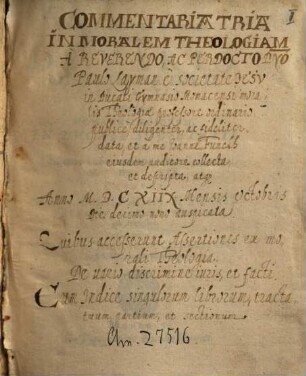 COMMENTARIA TRIA
IN MORALEM THEOLOGIAM
A REVERENDO, AC PERDOCTO DNO
Paulo Layman è societate Jesu
in Ducali Gymnasio Monacensi mora-
lis Theologiæ professore ordinario
publicè, diligenter, ac fideliter
data et a me Joanne
eiusdem auditore collecta
et descripta, atq
Anno M. D. C XIIX Mensis Octobris
Die decimo nono auspicata
Quibus accesserunt Assertiones ex mo-
rali Theologia.
De vario discrimine iuris, et facti,
Cum Indice singulorum librorum, tracta
tuum partium, et sectionum.
Clm. 27516